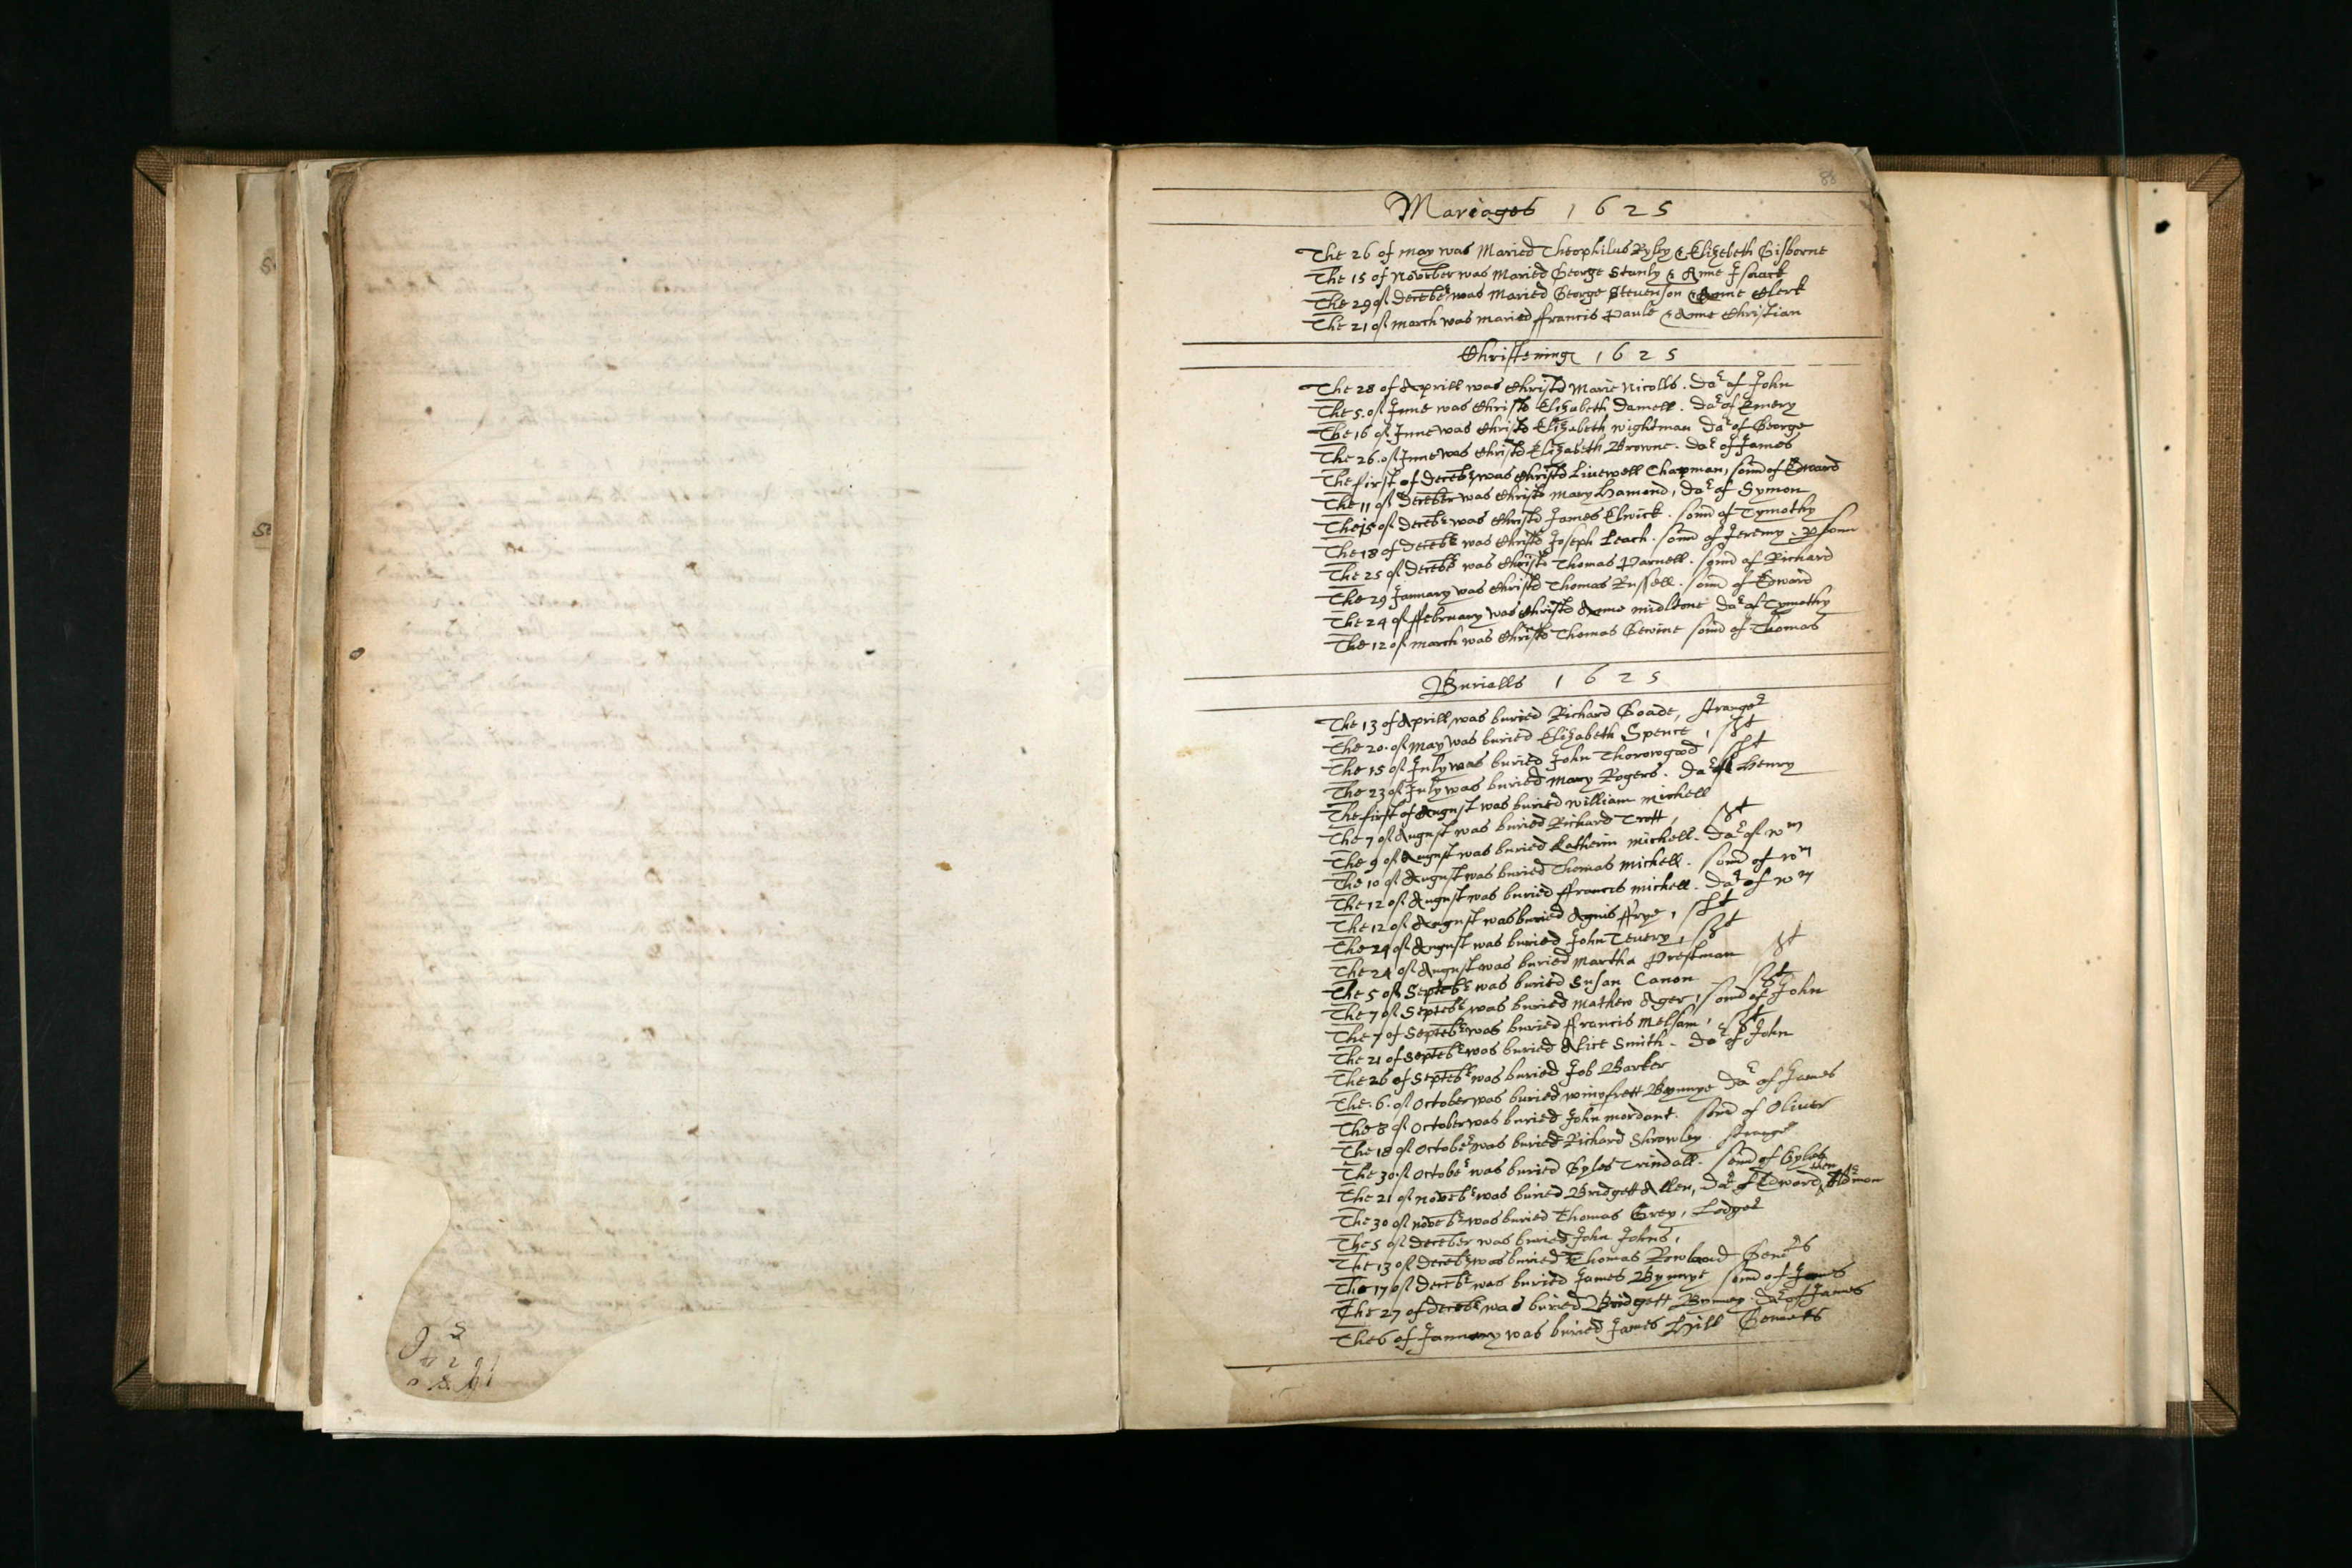 88
Mariages 1625
The 26 of may was Maried Theophilus Ryly & Elizebeth Gisborne
The 15 of Novēber was Maried George Stanly & Anne Isaack
The 29 of decēber was Maried George Stevenson & Anne Clerk
The 21 of march was maried ffrancis Paule & Anne Christian
Christening 1625
The 28 of Aprill was Christd Marie Nicolls. dar of John
The 5. of June was Christd Elizabeth Damell. dar of Emery
The 16 of June was Christd Elizabeth wightman dar of George
The 26. of June was Christd Elizabeth Browne. dar of James
The first of decēbr was Christd Livewell Chapman, sonn of Edward
The 11 of decēber was Christd Mary Hamond, dar of Symon
The 15 of decēbr was Christd James Elwick. sonn of Tymothy
The 18 of decēbr was Christd Joseph Leach. sonn of Jeremy.
The 25 of decēbr was Christd Thomas Parnell. sonn of Richard
The 29 January was Christd Thomas Russell. sonn of Edward
The 24 of ffebruary was Christd Anne midltone dar of Tymothy
The 12 of march was Christd Thomas Gewine sonn of Thomas
Burialls 1625
The 13 of Aprill was buried Richard Goade, strangr
The 20. of May was buried Elizabeth Spence,
The 15 of July was buried John Thorowgood,
The 23 of July was buried Mary Rogers. dar of Henry
The first of August was buried william michell
The 7 of August was buried Richard Trott,
The 9 of August was buried Katherin michell. dar of wm
The 10 of August was buried Thomas michell. sonn of wm
The 12 of August was buried ffrancis michell. dar of wm
The 12 of August was buried Agnis ffrye,
The 24 of August was buried John Tevery,
The 24 of August was buried Martha Prestman
The 5 of Septēbr was buried Susan Canon
The 7 of Septēbr was buried Mathew Ager, sonn of John
The 7 of Septēbr was buried ffrancis Melsam,
The 21 of Septēbr was buried Alice Smith. dar of John
The 26 of Septēbr was buried Job Barker
The. 6. of October was buried winyfrett Bynnye dar of James
The 8 of October was buried John mordant. sonn of Oliver
The 18 of Octobr was buried Richard Shrowley. strangr
The 30. of Octobr was buried Gyles Trindall. sonn of Gyles
The 21 of novēbr was buried Bridgett Allen, dar of Edward then Aldrman
The 30 of novēbr was buried Thomas Grey, Lodger
The 5 of decēber was buried John Johns,
The 13 of decēbr was buried Thomas Rowland
The 17 of decēbr was buried James Bynnye sonn of James
The 27 of decēbr was buried Bridgett Bynney. dar of James
The 6 of January was buried James Hill